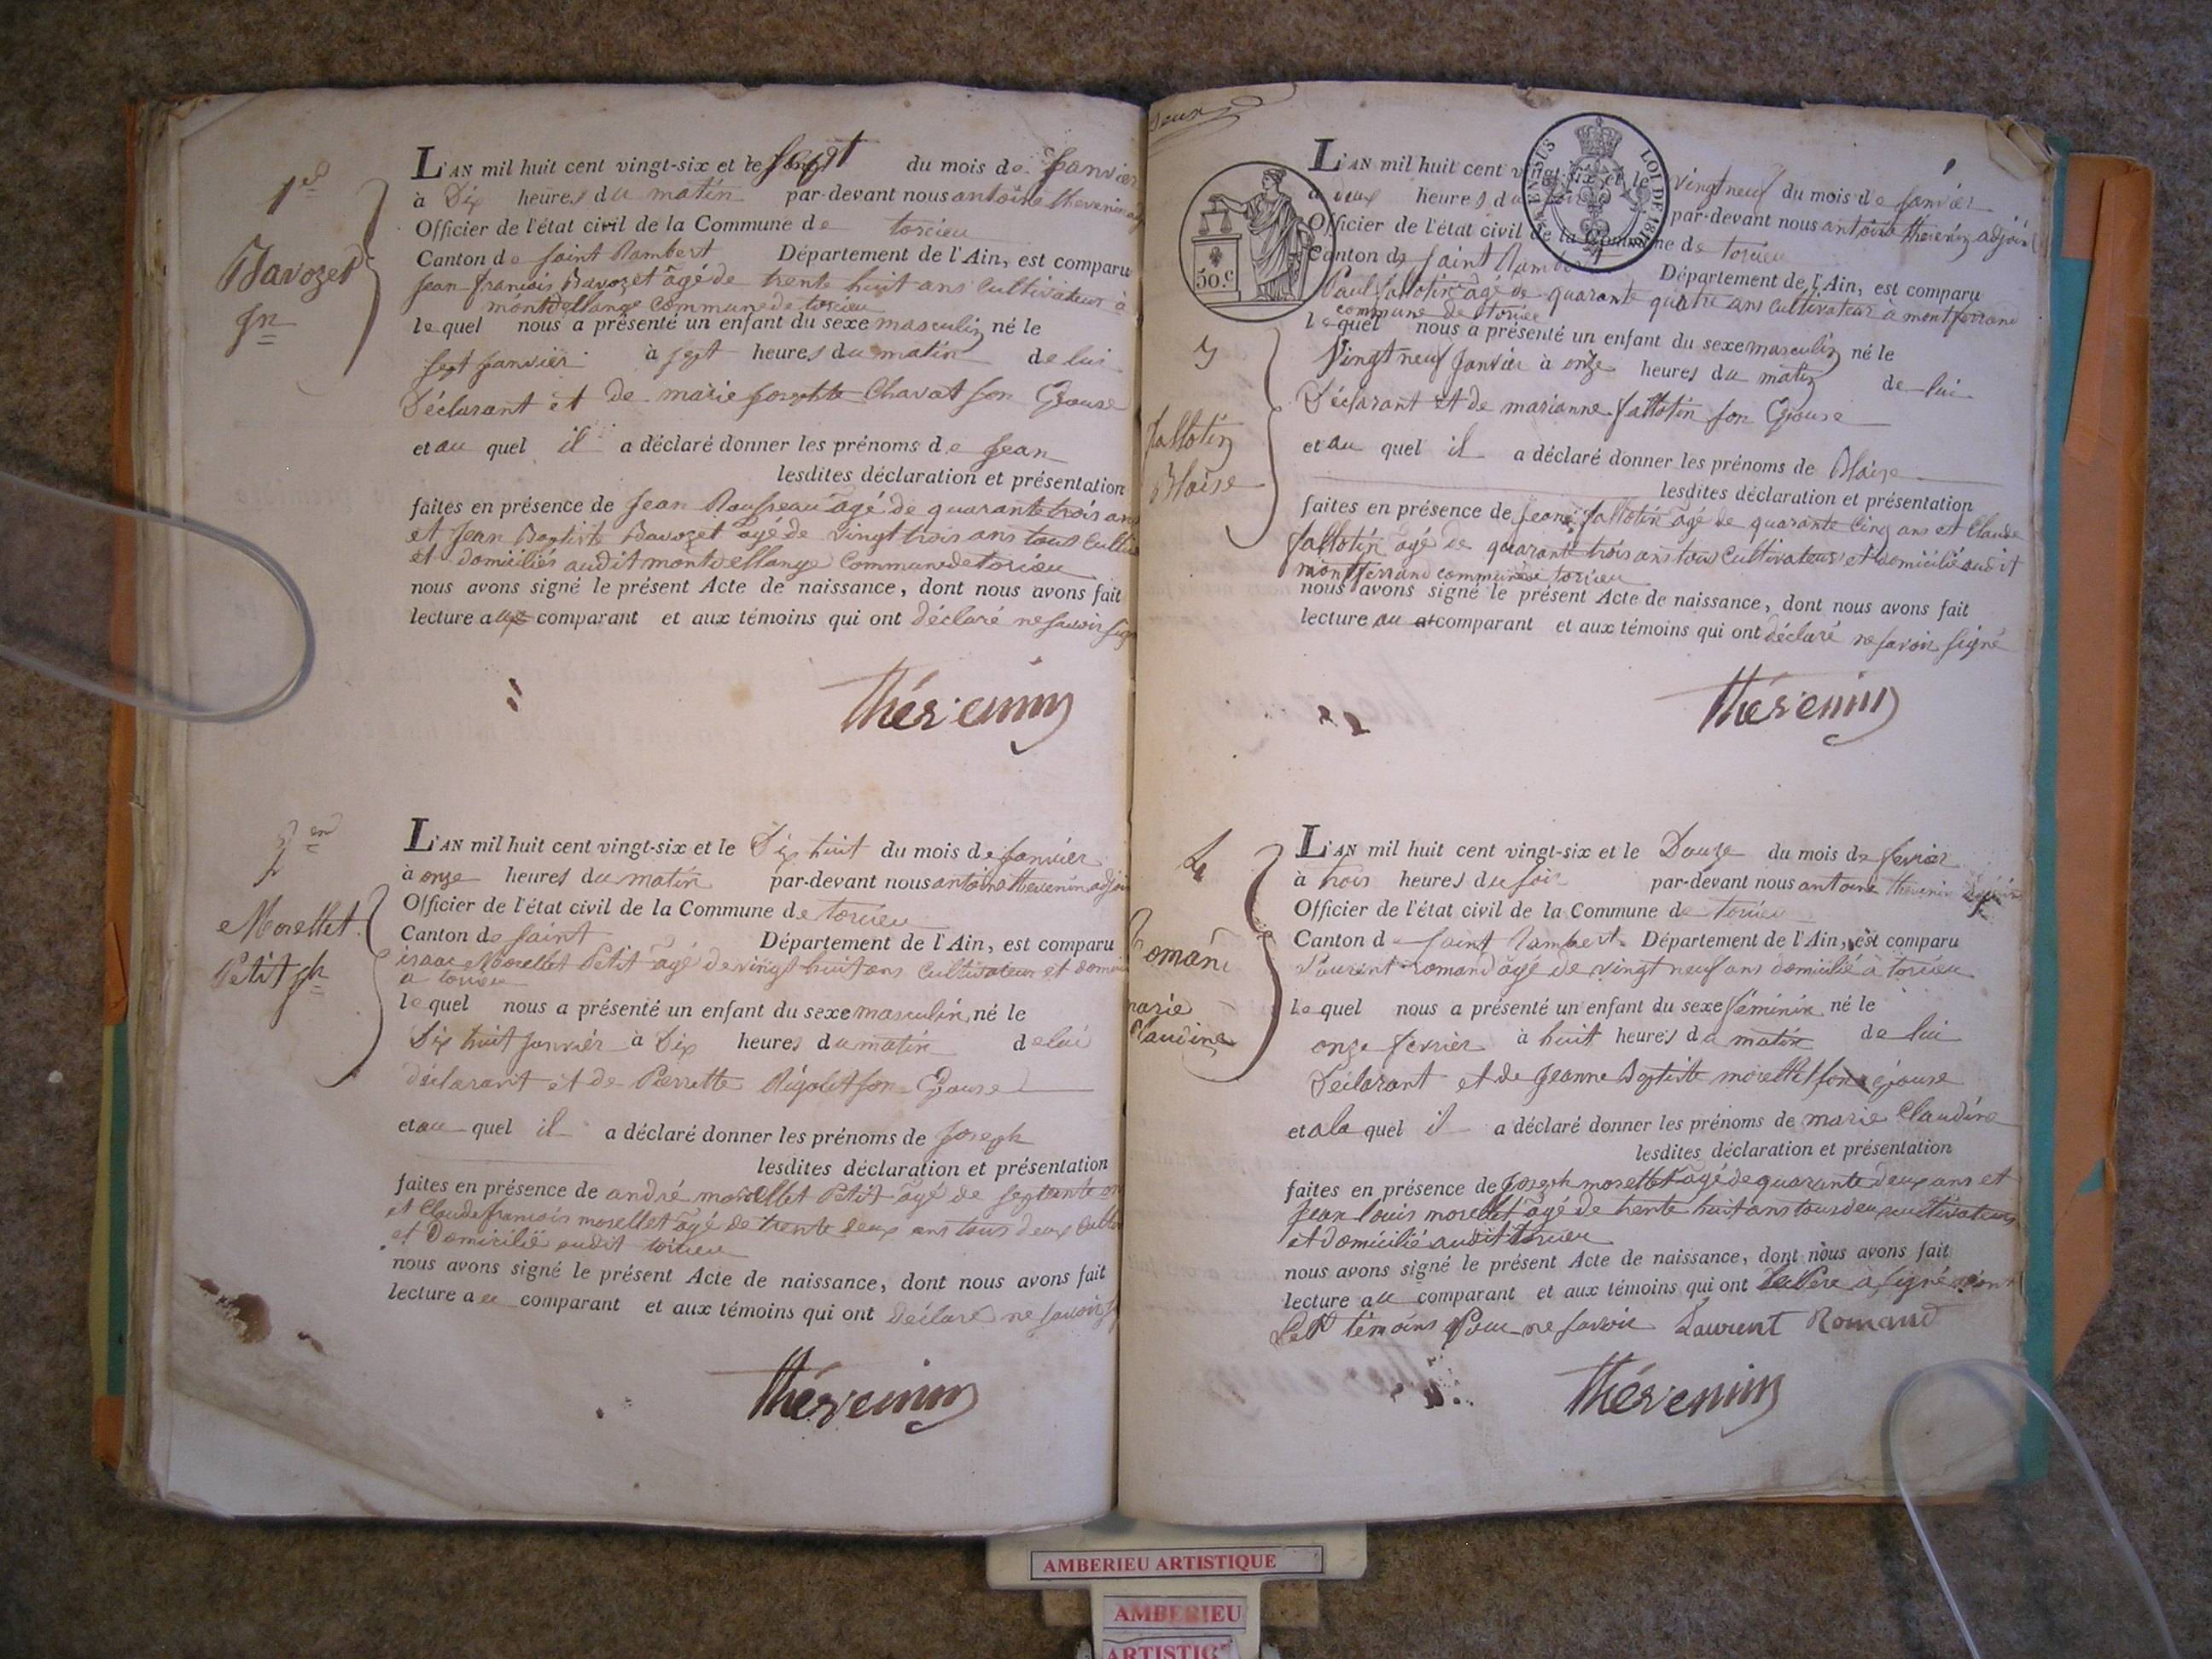 1er
Bavozet
Jn
L'AN mil huit cent vingt-six et le sept du mois de Janvier
à Dix heures du matin par-devant nous antoine thevenin
Officier de l'état civil de la Commune de torcieu
Canton de saint Rambert Département de l'Ain, est comparu
jean françois Bavozet âgé de trente huit ans Cultivateur à
montdellange Commune de torcieu
lequel nous a présenté un enfant du sexe masculin né le
sept janvier à sept heures du matin de lui
Déclarant et de marie josephte Chavat son Epouse
et au quel il a déclaré donner les prénoms de jean
lesdites déclaration et présentation
faites en présence de jean Rousseau âgé de quarante trois ans
et jean Baptiste Bavozet âgé de vingt trois ans tous
et domiciliés audit montdellange Commune de torcieu
nous avons signé le présent Acte de naissance, dont nous avons fait
lecture au comparant et aux témoins qui ont déclaré ne savoir
Thévenin
2en
Morellet
Petit jh
L'AN mil huit cent vingt-six et le Dix huit du mois de janvier
à onze heures du matin par-devant nous antoine thevenin
Officier de l'état civil de la Commune de torcieu
Canton de saint Département de l'Ain, est comparu
isaac Morellet Petit âgé de vingt huit ans Cultivateur et
a torcieu
lequel nous a présenté un enfant du sexe masculin né le
Dix huit janvier à Dix heures du matin de lui
déclarant et de Pierrette Rigolet son Epouse
et au quel il a déclaré donner les prénoms de joseph
lesdites déclaration et présentation
faites en présence de andré morellet Petit âgé de septante
et Claude françois morellet âgé de trente deux ans tous deux
et Domicilié audit torcieu
nous avons signé le présent Acte de naissance, dont nous avons fait
lecture au comparant et aux témoins qui ont déclaré ne savoir
Thévenin
Deux
50 c
LOI DE 181
3
fallotin
Blaise
L'AN mil huit cent vingt-six et le vingt neuf du mois de janvier
à deux heures du par-devant nous antoine thevenin adjoint
Officier de l'état civil de la Commune de torcieu
Canton de saint Rambert Département de l'Ain, est comparu
Paul fallotin âgé de quarante quatre ans Cultivateur à montferrand
commune de torcieu
lequel nous a présenté un enfant du sexe masculin né le
Vingt neuf janvier à onze heures du matin de lui
Déclarant et de marianne fallotin son Epouse
et au quel il a déclaré donner les prénoms de Blaise
lesdites déclaration et présentation
faites en présence de fallotin âgé de quarante Cinq ans et Claude
fallotin âgé de quarante trois ans tous Cultivateurs et domicilié audit
montferrand commune de torcieu
nous avons signé le présent Acte de naissance, dont nous avons fait
lecture au comparant et aux témoins qui ont déclaré ne savoir signé
Thévenin
4
Romand
marie
Claudine
L'AN mil huit cent vingt-six et le Douze du mois de fevrier
à trois heures du soir par-devant nous antoine thevenin adjoint
Officier de l'état civil de la Commune de torcieu
Canton de saint Rambert Département de l'Ain, est comparu
Laurent romand âgé de vingt neuf ans domicilié à torcieu
lequel nous a présenté un enfant du sexe féminin né le
onze fevrier à huit heures du matin de lui
Déclarant et de jeanne Baptiste morellet son épouse
et a la quel il a déclaré donner les prénoms de marie Claudine
lesdites déclaration et présentation
faites en présence de joseph morellet âgé de quarante deux ans et
jean Louis morellet âgé de trente huit ans tous deux cultivateurs
et domicilié audit torcieu
nous avons signé le présent Acte de naissance, dont nous avons fait
lecture au comparant et aux témoins qui ont Le Père à signé
témoins Pour ne savoir Laurent Romand
Thévenin
AMBERIEU ARTISTIQUE
AMBERIEU